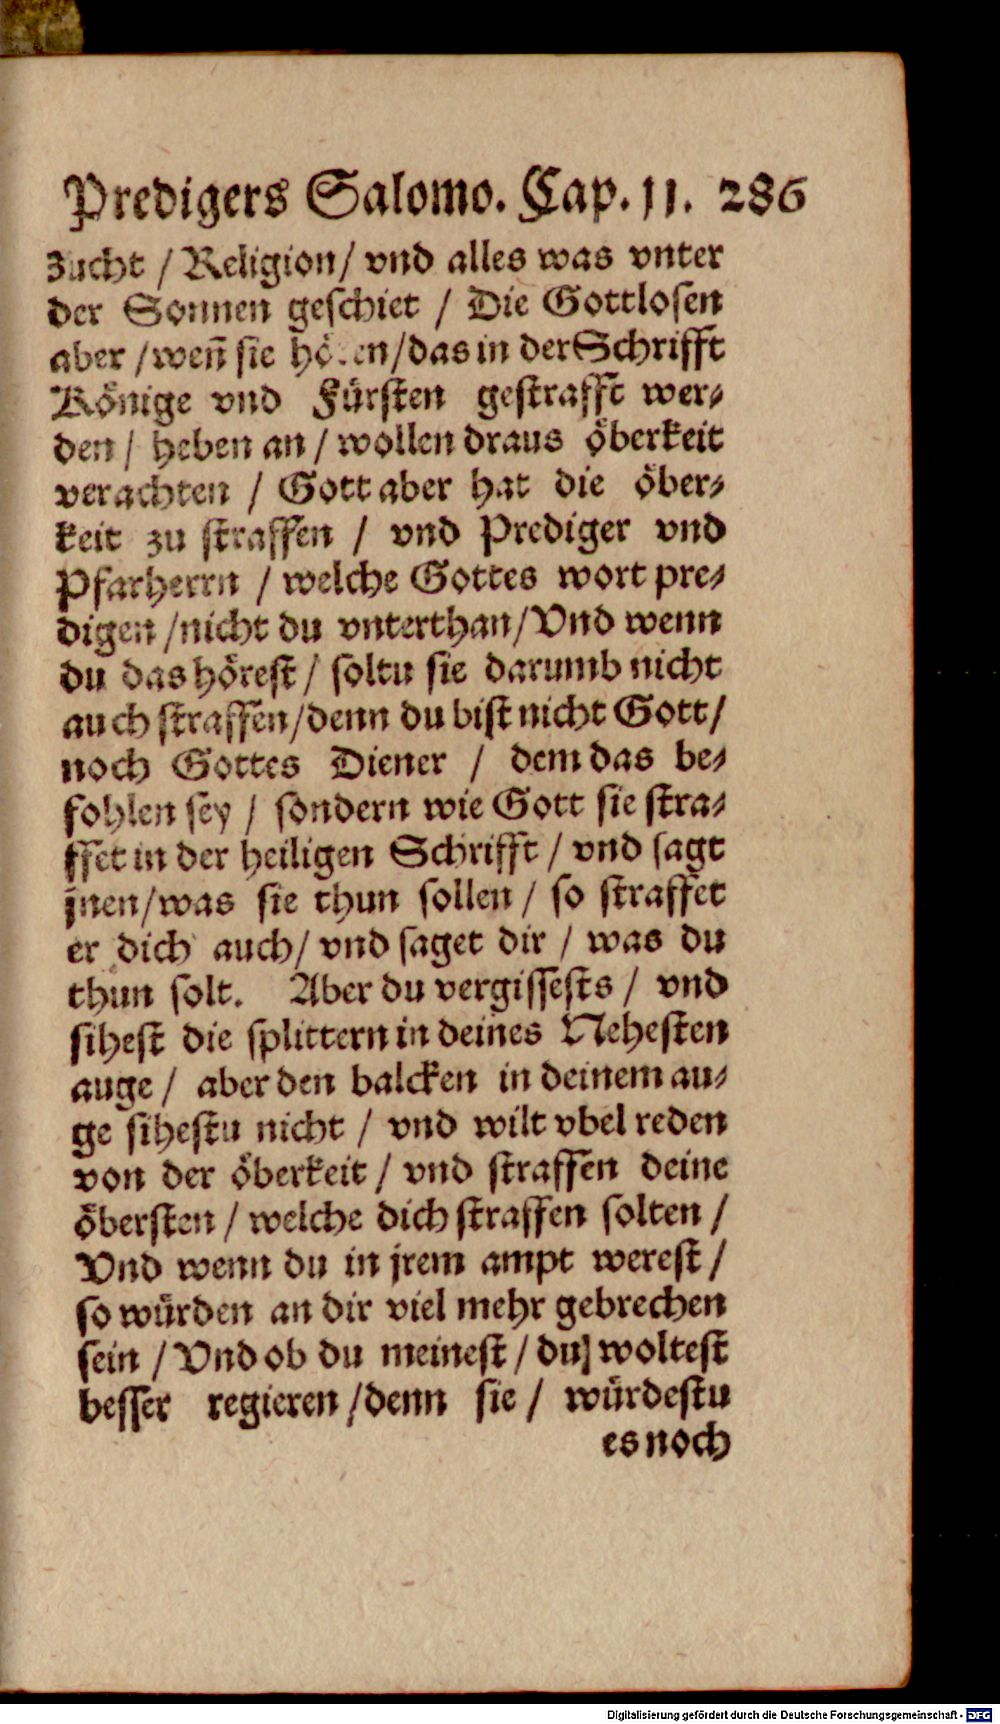 Predigers Salomo. Cap. 11. 286
zucht / Religion / vnd alles was vnter
der Sonnen geschiet / Die Gottlosen
aber / weñ sie hören / das in der Schrifft
Könige vnd Fürsten gestrafft wer⸗
den / heben an / wollen draus öberkeit
verachten / Gott aber hat die öber⸗
keit zu straffen / vnd Prediger vnd
Pfarherrn / welche Gottes wort pre⸗
digen / nicht du vnterthan / Vnd wenn
du das hörest / soltu sie darumb nicht
auch straffen / denn du bist nicht Gott /
noch Gottes Diener / dem das be⸗
fohlen sey / sondern wie Gott sie stra⸗
ffet in der heiligen Schrifft / vnd sagt
jnen / was sie thun sollen / so straffet
er dich auch / vnd saget dir / was du
thun solt. Aber du vergissests / vnd
sihest die splittern in deines Nehesten
auge / aber den balcken in deinem au⸗
ge sihestu nicht / vnd wilt vbel reden
von der öberkeit / vnd straffen deine
öbersten / welche dich straffen solten /
Vnd wenn du in jrem ampt werest /
so würden an dir viel mehr gebrechen
sein / Vnd ob du meinest / du] woltest
besser regieren / denn sie / würdestu
es noch
Digitalisierung gefördert durch die Deutsche Forschungsgemeinschaft - DFG